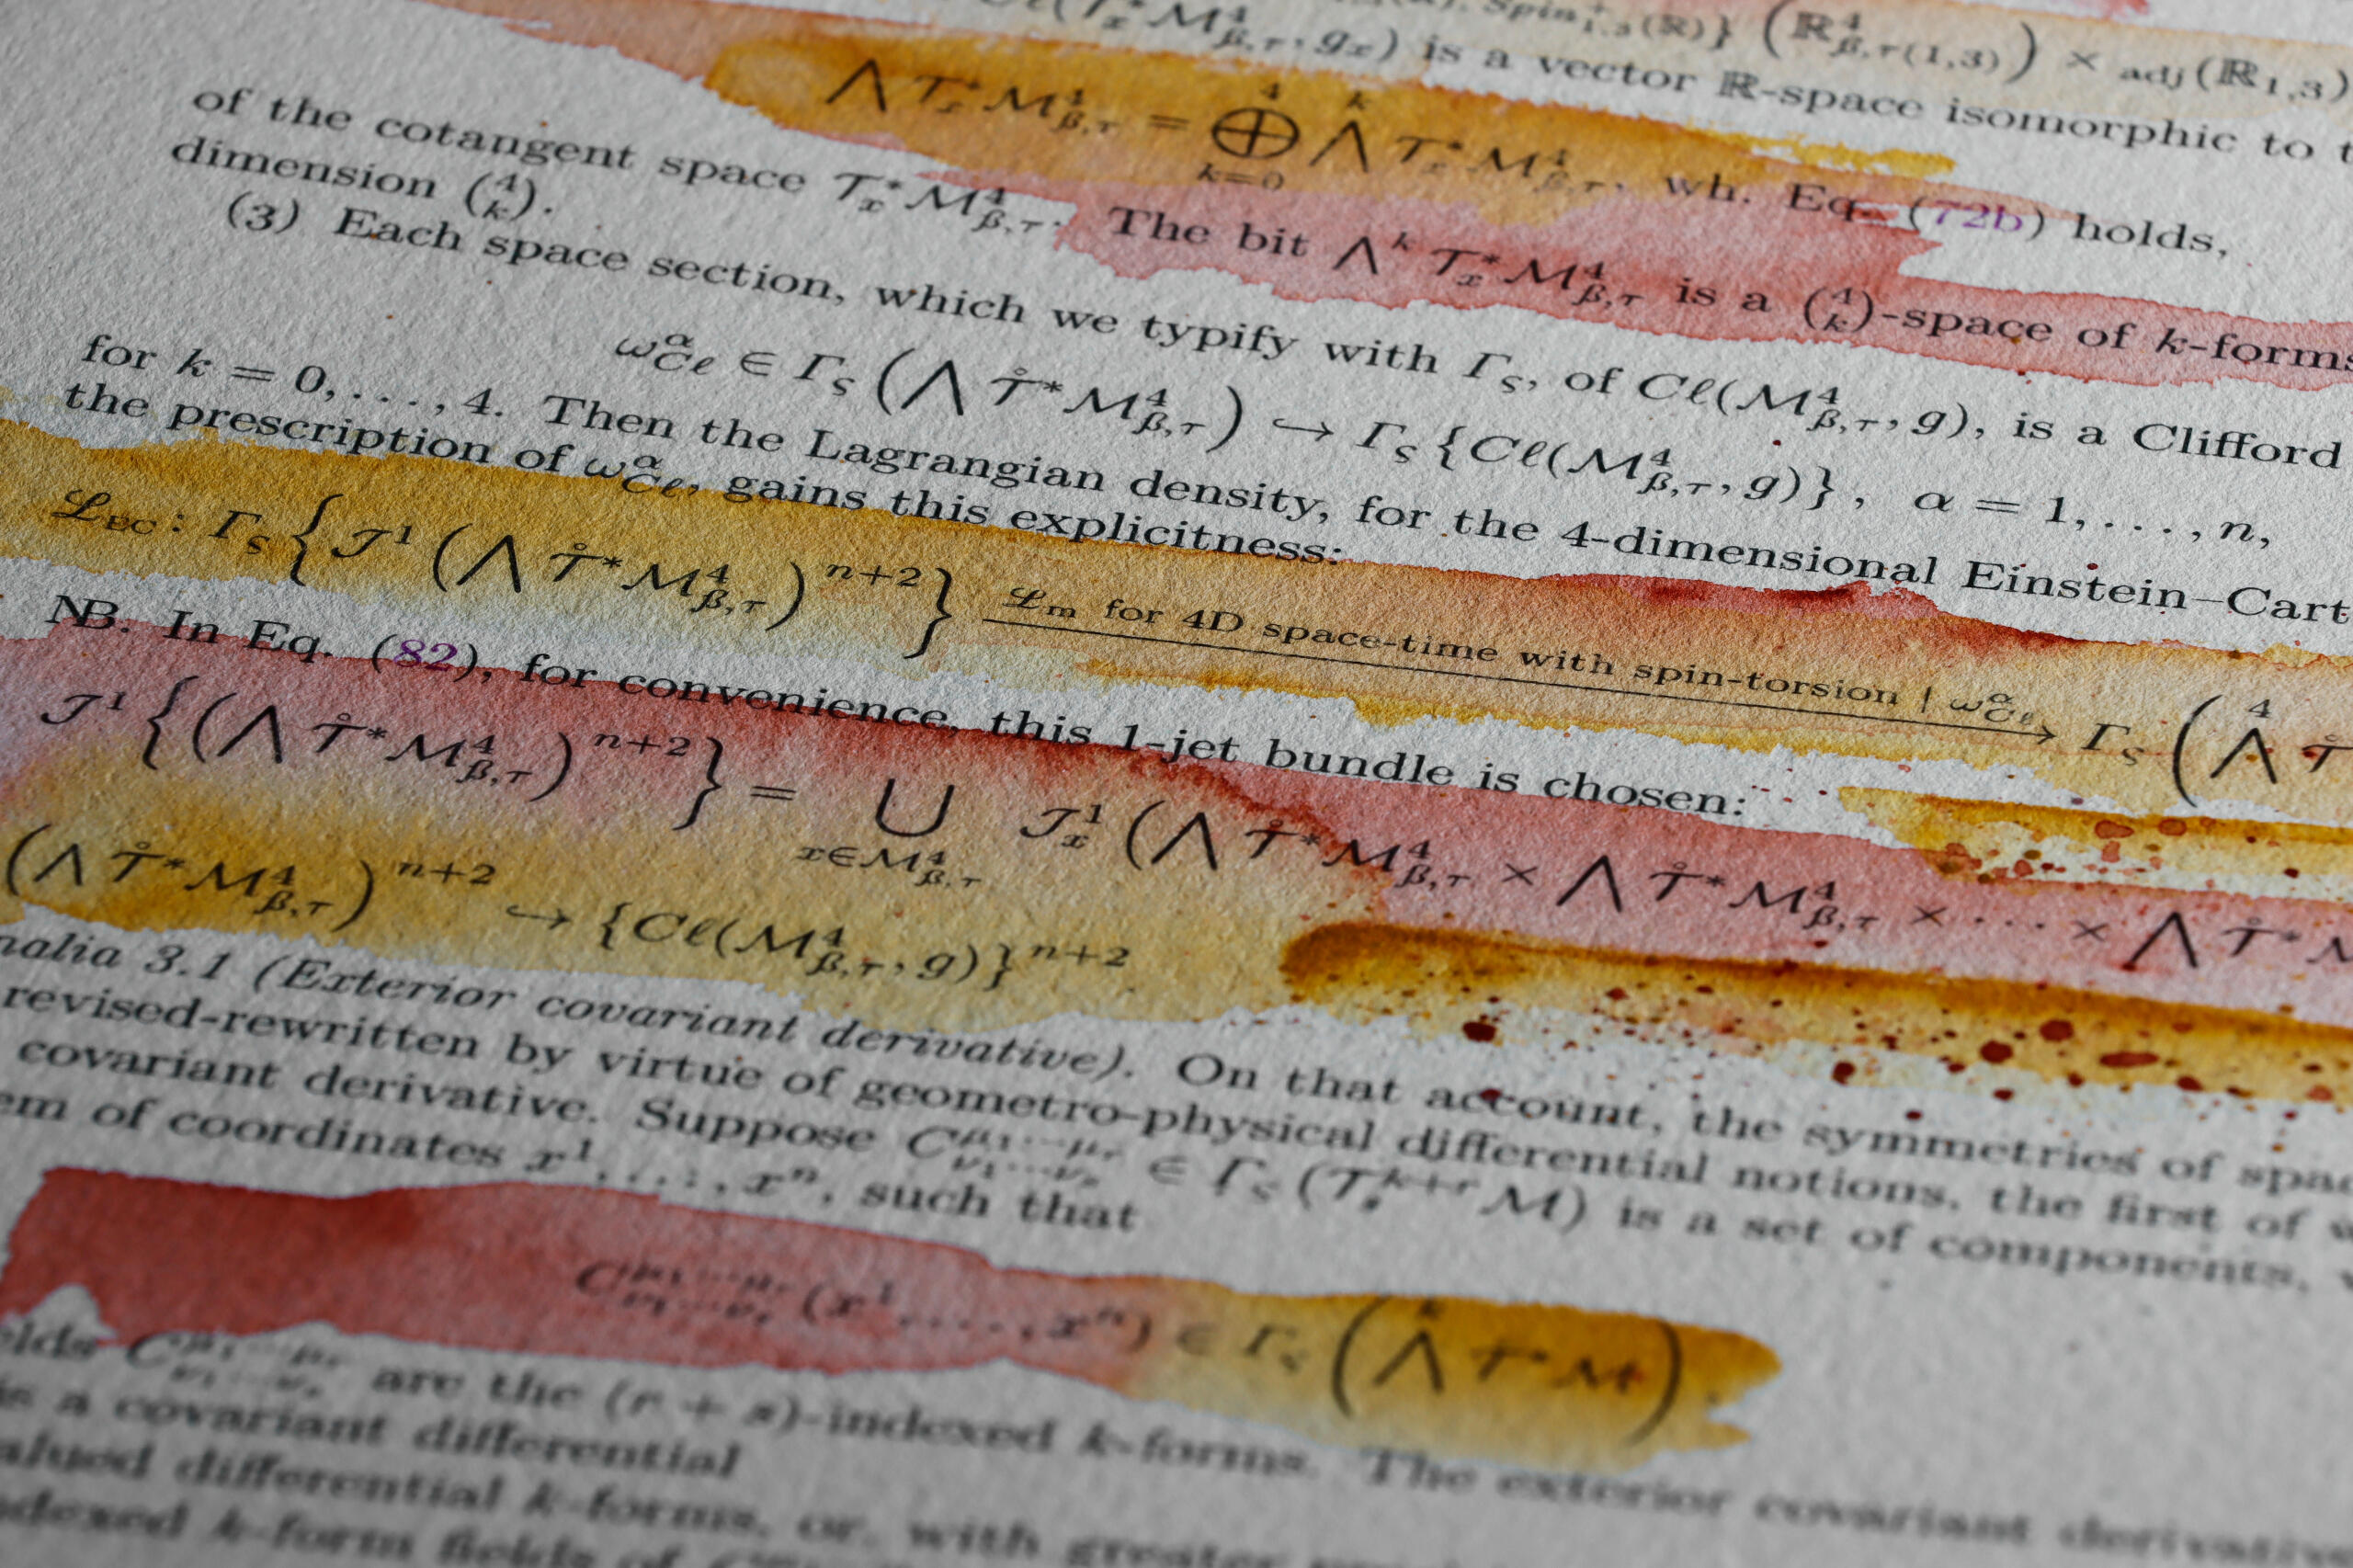 Cℓ(T*ₓM⁴_β,τ, gₓ) is a vector ℝ-space isomorphic to
Spin⁺₁,₃(ℝ)} (ℝ⁴_β,τ(1,3)) × adj(ℝ₁,₃)
⋀T*ₓM⁴_β,τ = ⊕⁴_k=0 ⋀ᵏ T*ₓM⁴_β,τ, wh. Eq. (72b) holds,
of the cotangent space T*ₓM⁴_β,τ. The bit ⋀ᵏ T*ₓM⁴_β,τ is a (4 k)-space of k-forms
dimension (4 k).
(3) Each space section, which we typify with Γ_ς, of Cℓ(M⁴_β,τ, g), is a Clifford
ω^α_Cℓ ∈ Γ_ς (⋀ T̊*M⁴_β,τ) ↪ Γ_ς {Cℓ(M⁴_β,τ, g)}, α = 1, . . . , n,
for k = 0, . . . , 4. Then the Lagrangian density, for the 4-dimensional Einstein–Cart
the prescription of ω^α_Cℓ, gains this explicitness:
ℒ_EC : Γ_ς {J¹ (⋀ T̊*M⁴_β,τ)ⁿ⁺²} ℒ_m for 4D space-time with spin-torsion | ω^α_Cℓ → Γ_ς (⋀⁴ T̊
NB. In Eq. (82), for convenience, this 1-jet bundle is chosen:
J¹ {(⋀ T̊*M⁴_β,τ)ⁿ⁺²} = ⋃_x∈M⁴_β,τ J¹ₓ (⋀ T̊*M⁴_β,τ × ⋀ T̊*M⁴_β,τ × · · · × ⋀ T̊*M
(⋀ T̊*M⁴_β,τ)ⁿ⁺² ↪ {Cℓ(M⁴_β,τ, g)}ⁿ⁺²
nalia 3.1 (Exterior covariant derivative). On that account, the symmetries of spac
revised-rewritten by virtue of geometro-physical differential notions, the first of
covariant derivative. Suppose C^μ₁···μᵣ_ν₁···νₛ ∈ Γ_ς (T^k+r_s M) is a set of components,
em of coordinates x¹, . . . , xⁿ, such that
C^μ₁···μᵣ_ν₁···νₛ (x¹, . . . , xⁿ) ∈ Γ_ς (⋀ᵏ T*M).
elds C^μ₁···μᵣ_ν₁···νₛ are the (r + s)-indexed k-forms. The exterior covariant derivative
is a covariant differential
alued differential k-forms, or, with greater
ndexed k-form fields of